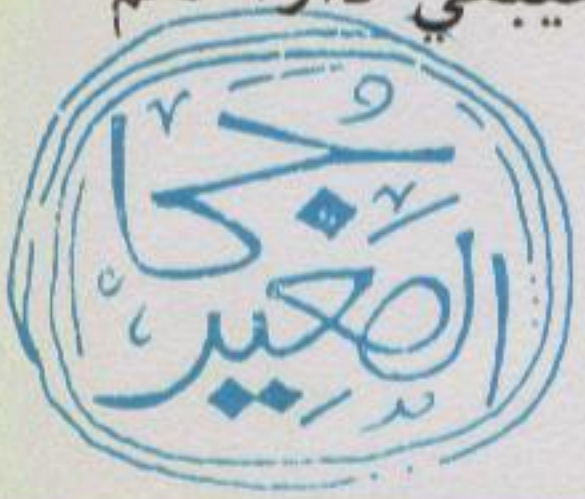 جُحا
الصغير